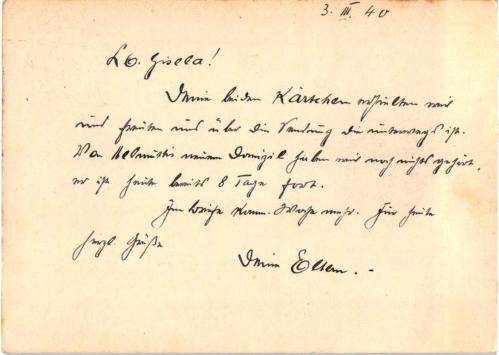 3. III. 40
Lb. Gisela!
Deine beiden Kärtchen erhielten wir
und freuten uns über die Sendung die unterwegs ist.
Von Helmuts neuem Domizil haben wir noch nichts gehört,
er ist heute bereits 8 Tage fort.
Im Briefe komm. Woche mehr. Für heute
herzl. Grüße
Deine Eltern. -